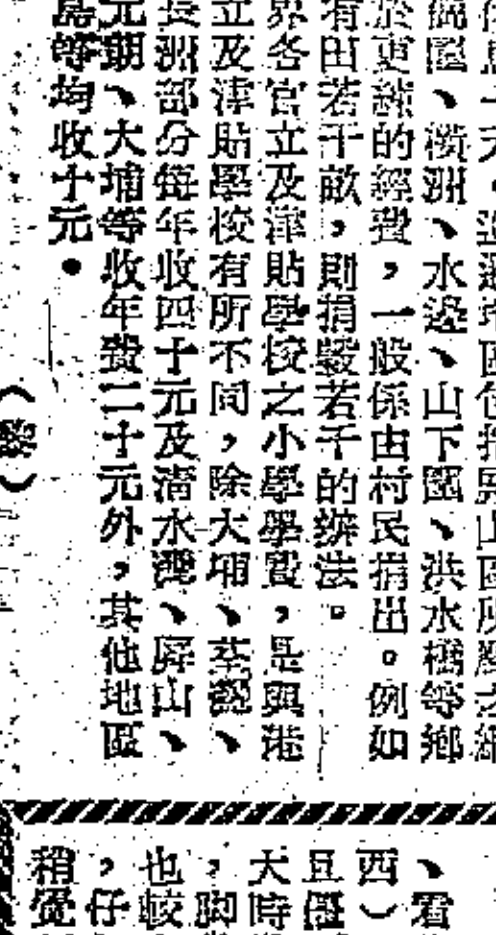 圍、橫洲、水邊、山下圍、洪水橋等鄉
於更練的經費，一般係由村民捐出。例如
有田若干畝，則捐穀若干的辦法。
界各官立及津貼學校之小學學費，是與港
立及津貼學校有所不同，除大埔、荃灣、
長洲部分每年收四十元及清水灣、屏山、
元朗、大埔等收年費二十元外，其他地區
島等均收十元。
（黎）
、看
西）
且僅
大時
，脚
也較
，仔
稍覺